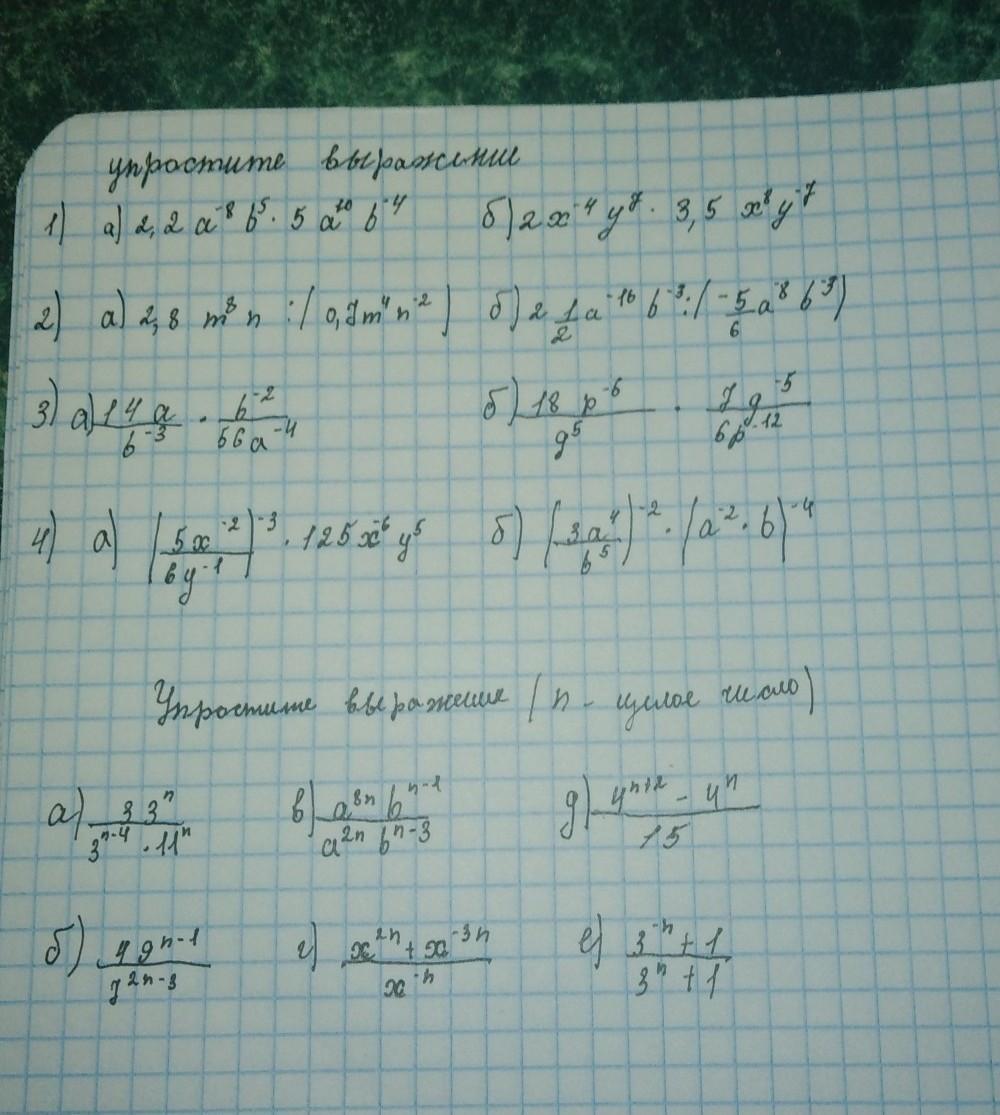 упростите выражение
1) а) 2,2 a⁻⁸ b⁵ · 5 a¹⁰ b⁻⁴ б) 2x⁻⁴ y⁷ · 3,5 x⁸ y⁻⁷
2) а) 2,8 m⁸ n : (0,7m⁴ n⁻²) б) 2 1/2 a⁻¹⁶ b⁻³ : (-5/6 a⁻⁸ b⁻³)
3) а) 14a/b⁻³ · b⁻²/56a⁻⁴ б) 18 p⁻⁶/g⁵ · 7g⁻⁵/6p⁻¹²
4) а) (5x⁻²/6y⁻¹)⁻³ · 125x⁻⁶ y⁵ б) (3a⁴/b⁵)⁻² · (a⁻² · b)⁻⁴
Упростите выражение (n - целое число)
а) 33ⁿ/3ⁿ⁻⁴ · 11ⁿ в) a⁸ⁿ bⁿ⁻¹/a²ⁿ bⁿ⁻³ д) 4ⁿ⁺² - 4ⁿ/15
б) 49ⁿ⁻¹/7²ⁿ⁻³ г) x²ⁿ + x⁻³ⁿ/x⁻ⁿ е) 3⁻ⁿ + 1/3ⁿ + 1